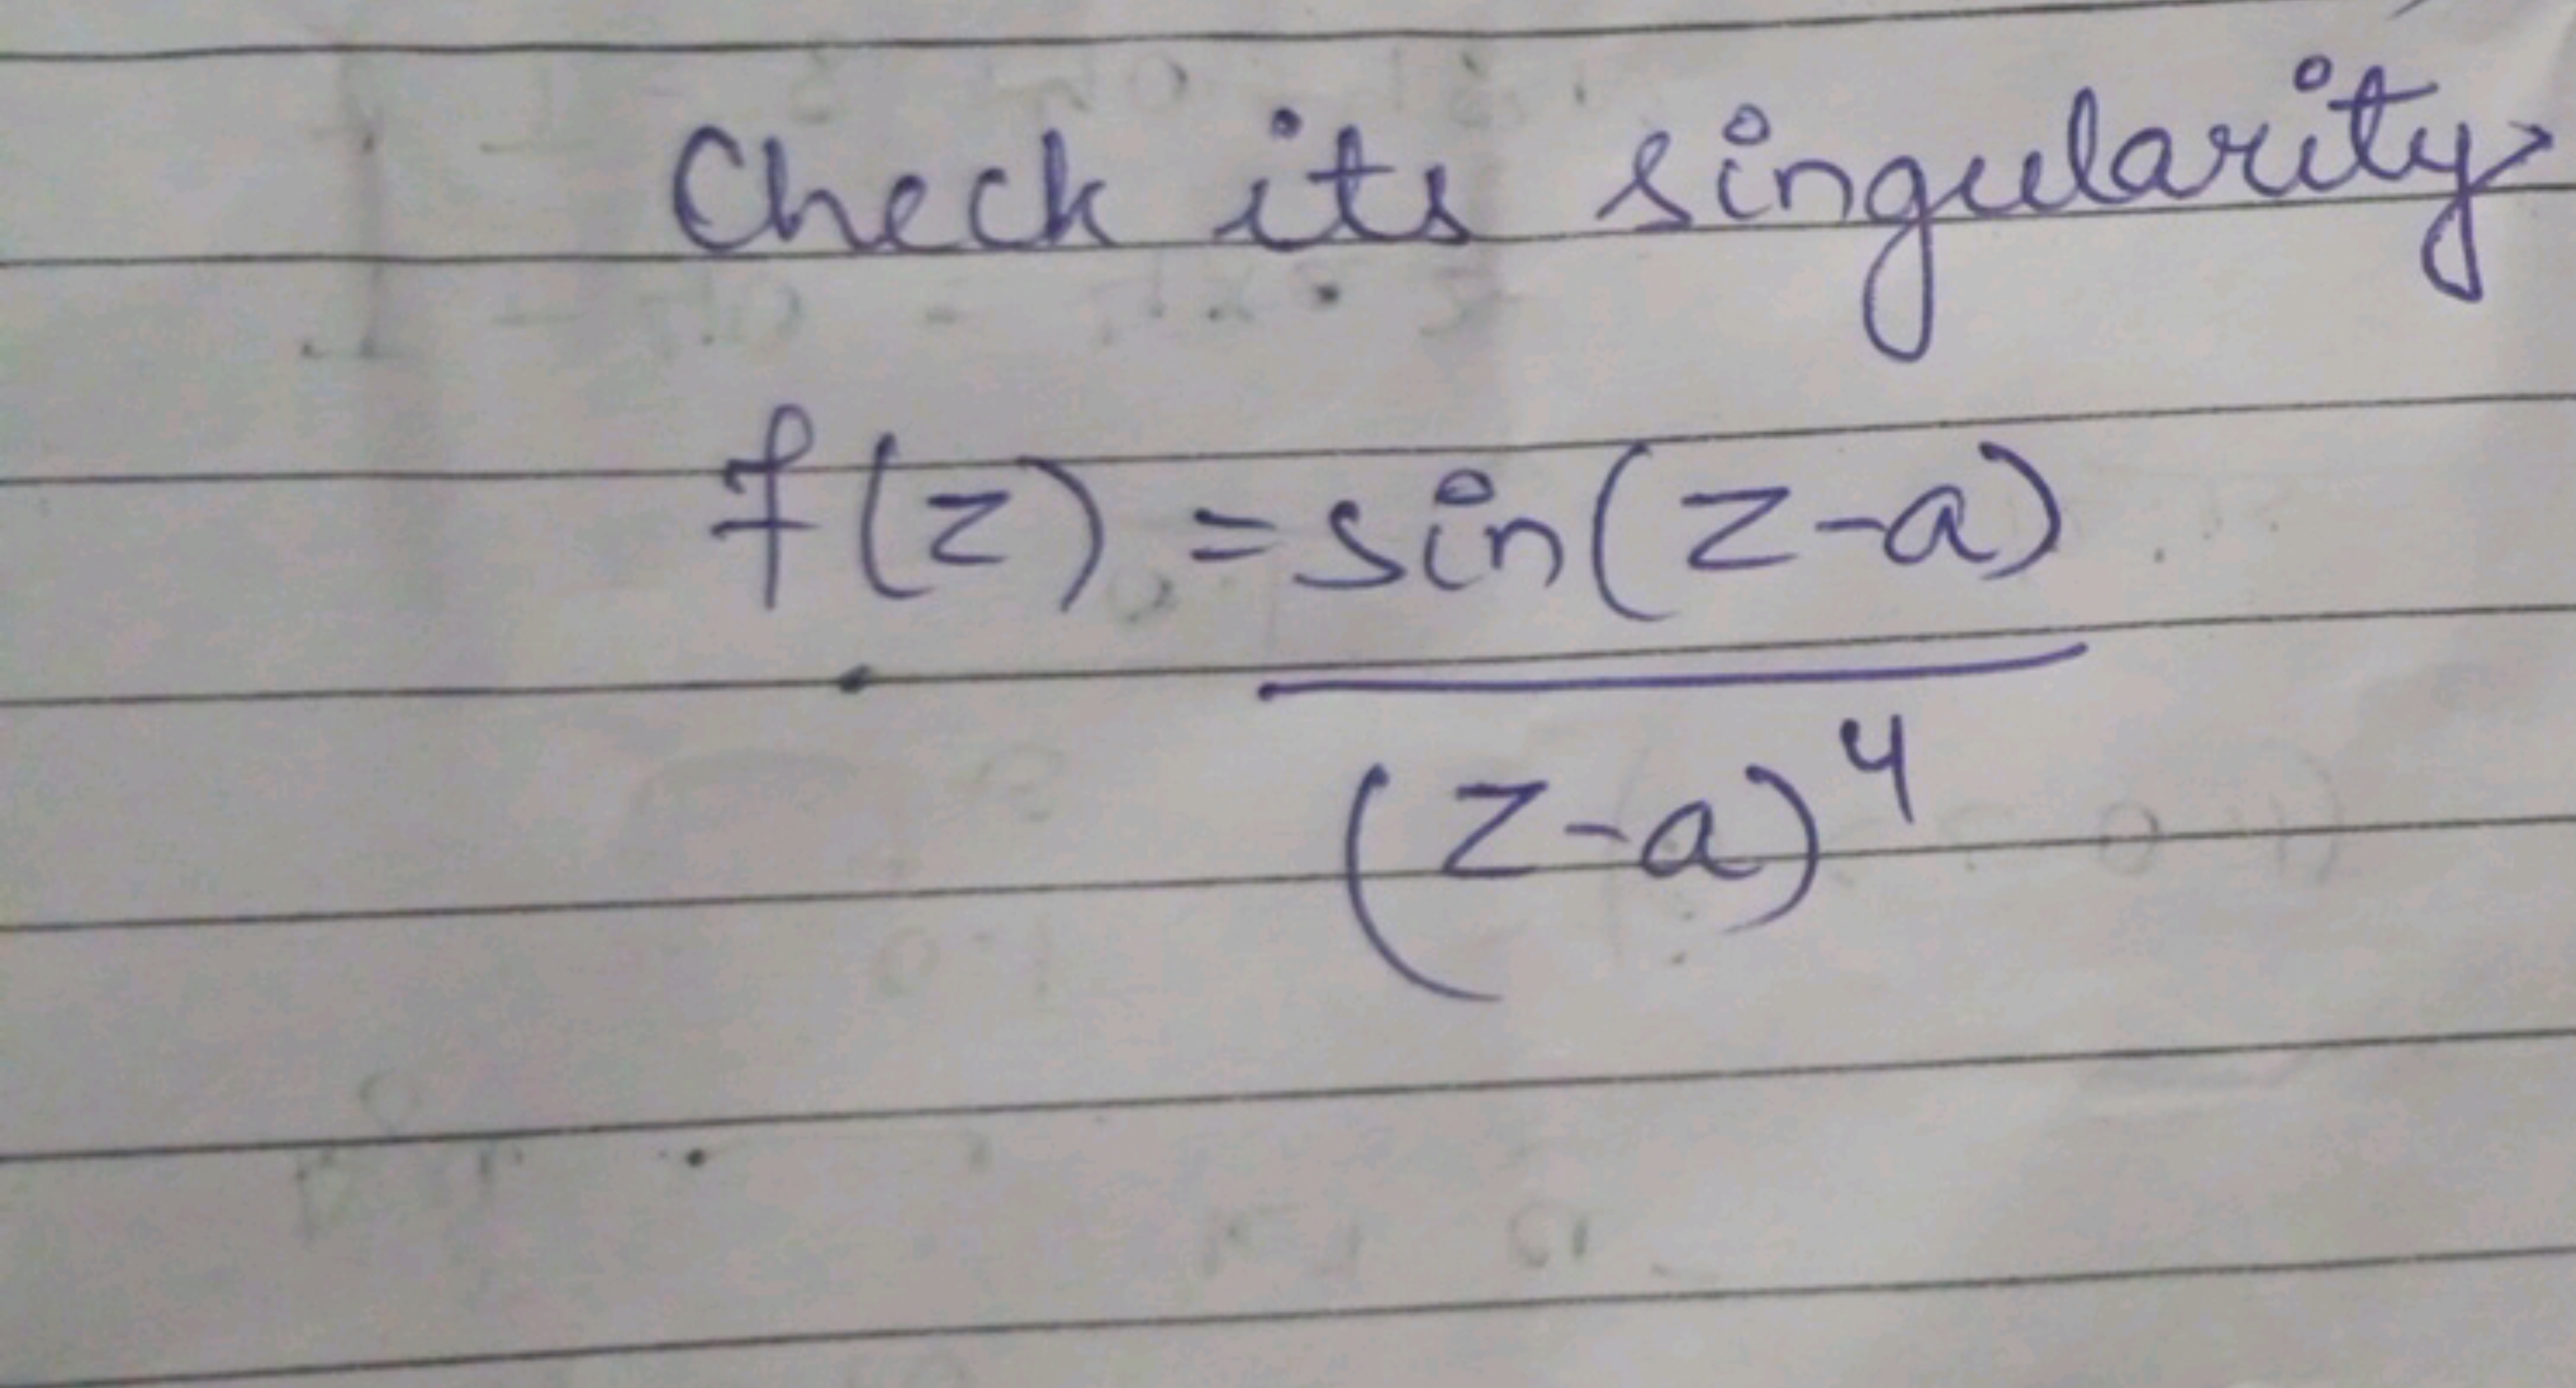 Check its singularity
f(z) = sin(z-a)
(z-a)^4